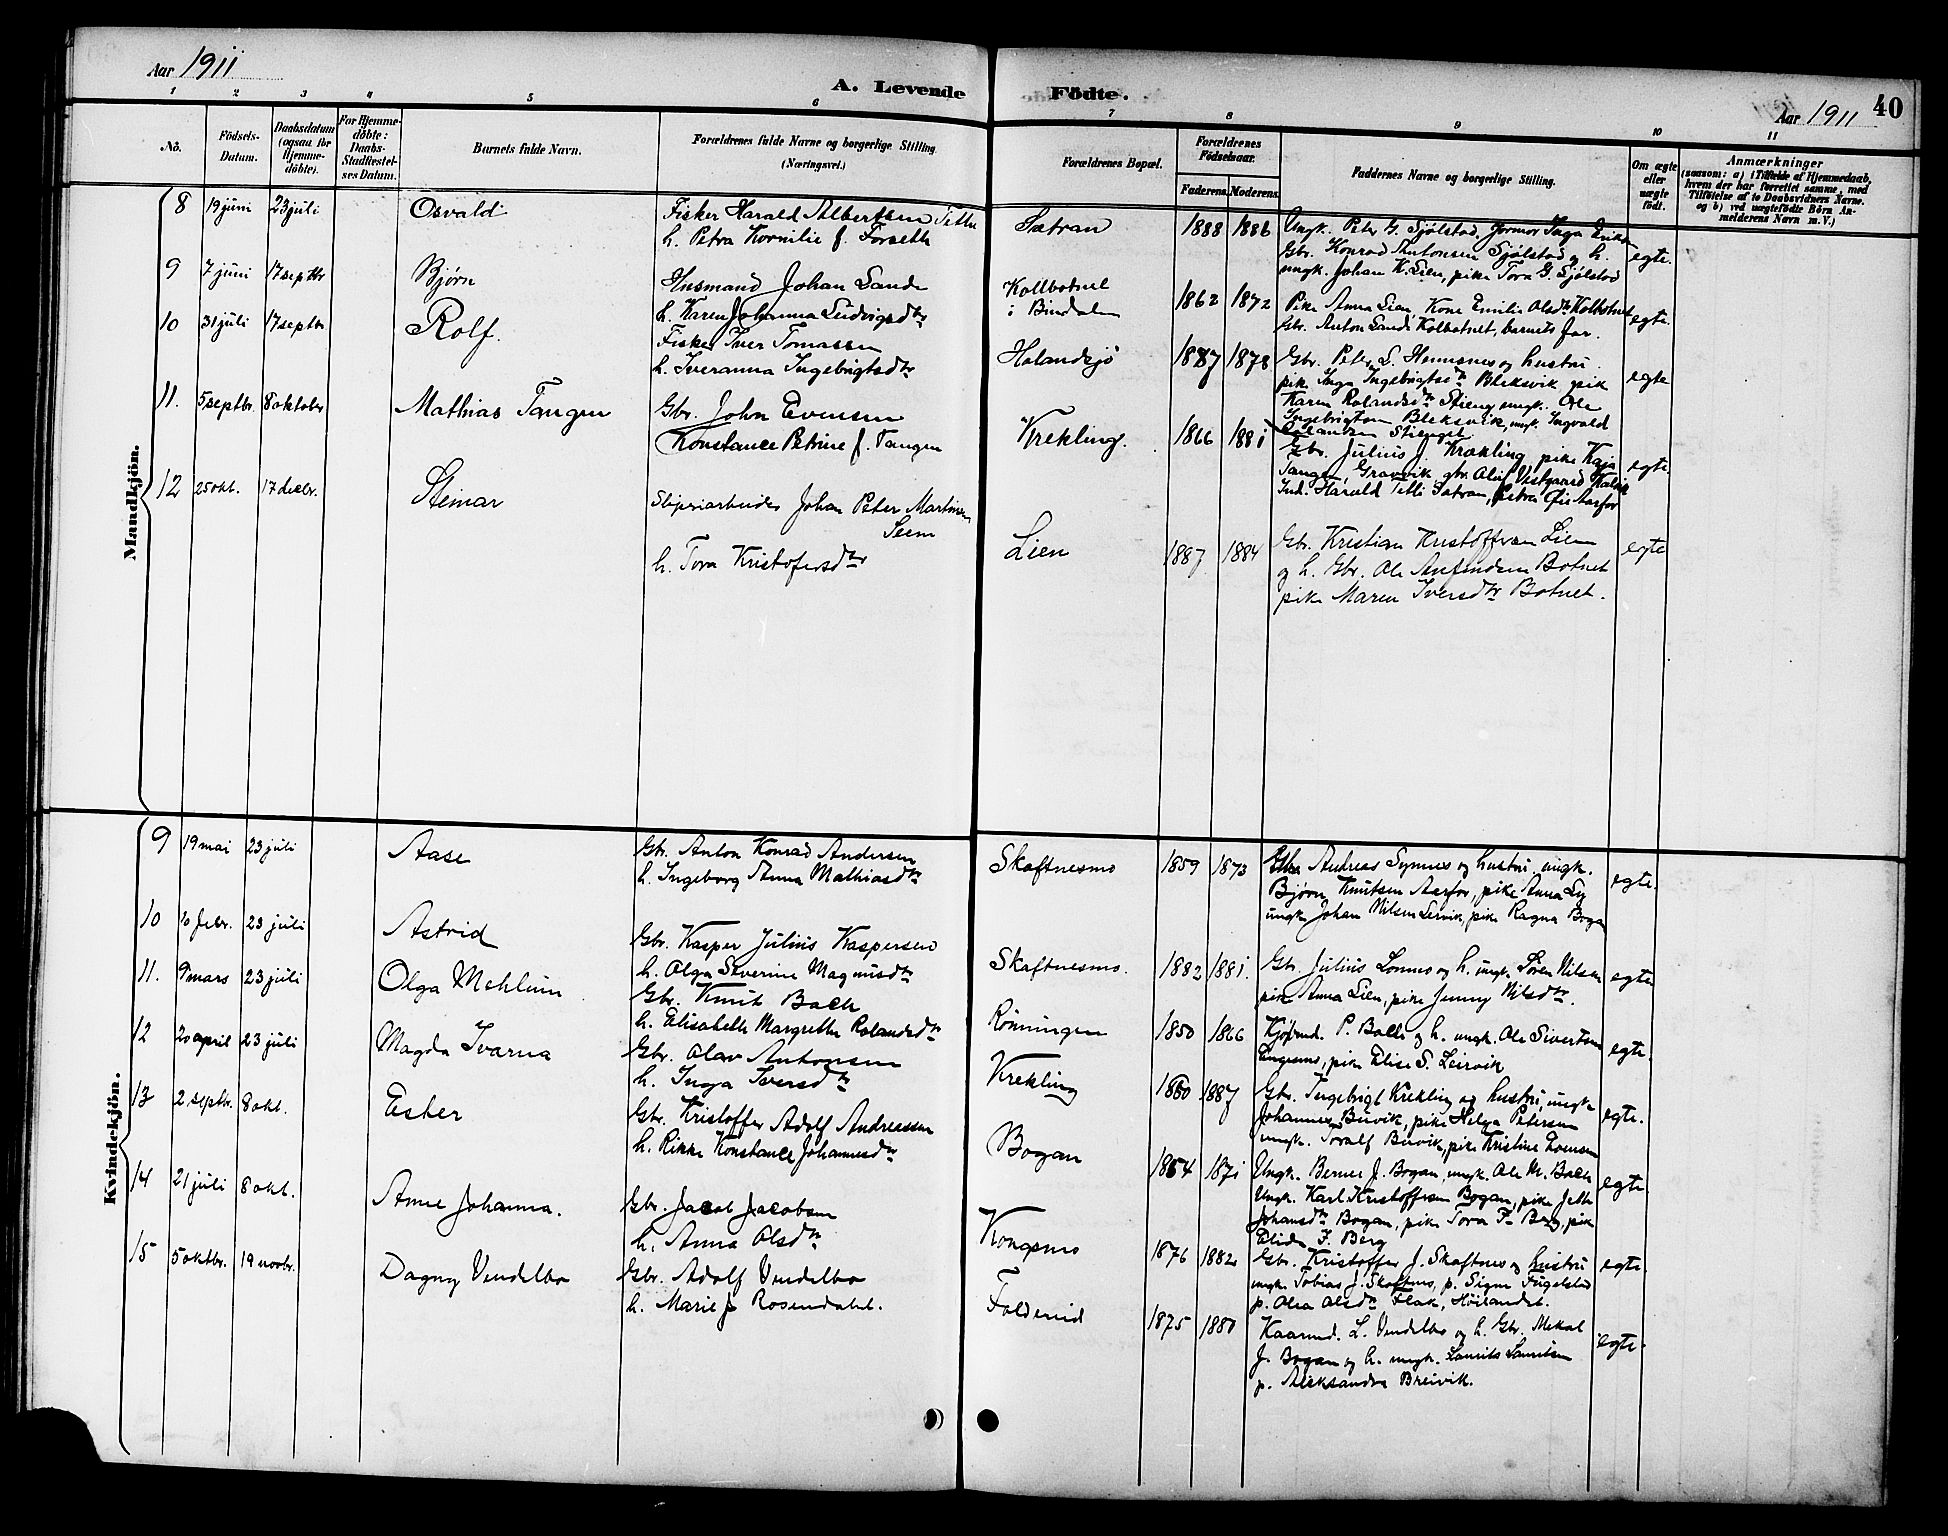 Aar 1911
A. Levende Födte.
Aar 1911
40
1 2 3 4 5 6 7 8 9 10 11
No.
Födsels-
Datum.
Daabsdatum
(ogsaa for
Hjemme-
döbte).
For Hjemme-
döbte:
Daabs-
Stadfæstel-
ses Datum.
Barnets fulde Navn.
Forældrenes fulde Navne og borgerlige Stilling
(Næringsvei.)
Forældrenes Bopæl.
Forældrenes
Födselsaar.
Faderens. Moderens.
Faddernes Navne og borgerlige Stilling.
Om ægte
eller
uægte
født.
Anmærkninger
(saasom: a) i Tilfælde af Hjemmedaab,
hvem der har forrettet samme, med
Tilföielse af to Daabsvidners Navne.
og b) ved uægtefödte Börn An-
melderens Navn m. V.)
Mandkjön.
8 19 juni 23 juli Osvald
Fisker Harald Albertsen Tetlie
h. Petra Kornilie f. Forseth
Sætran 1888 1886
Ungk. Peter G. Sjölstad, Jormor Inga Eriksen
Gbr. Konrad Antonsen Sjölstad og h.
ungk. Johan K. Lien, pike Tora G. Sjölstad
egte.
9 7 juni 17 septbr Bjørn
Husmand Johan Sande
h. Karen Johanna Ludvigsdtr
Kolbotnet
i Bindalen
1862 1872
Pike Anna Lien, Kone Emilie Olsdtr Kolbotnet
Gbr. Anton Sande Kolbotnet, barnets far.
egte.
10 31 juli 17 septbr Rolf.
Fisker Iver Tomassen
h. Iveranna Ingebrigtsdtr
Holandsjö 1887 1878
Gbr. Peter L. Hennesnes og hustru
pike Inga Ingebrigtsdtr Bleksvik pik
Karen Rolandsdtr Stieng ungk. Ole
Ingebrigtsen Bleksvik, ungk. Ingvald
Rolandsen Stienget
egte
11. 5 septbr. 8 oktober Mathias Tangen
Gbr. John Evensen
Konstance Petrine f. Tangen
Krekling. 1866 1881
Gbr. Julius J. Krækling, pike Kaja
Tangen, Gravvik, gbr. Olaf Vestgaard Kalvik
Ind. Harald Tetli Sætran, Petra Öie Aarfor
egte.
12 25 okt. 17 decbr. Steinar
Sliperiarbeider Johan Peter Martinsen
Seem
h. Tora Kristofersdtr
Lien 1887 1884
Gbr. Kristian Kristoffersen Lien
og h. Gbr. Ole Anfindsen Botnet
pike Maren Iversdtr Botnet.
egte
Kvindekjön.
9 19 mai 23 juli Aase
Gbr. Anton Konrad Andersen
h. Ingeborg Anna Mathiasdtr
Skaftnesmo 1859 1873
Gbr. Andreas Synnes og hustru, ungk.
Bjørn Knutsen Aarfor, pike Anna Lie
ungk Johan Nilsen Leirvik, pike Ragna Bogen
egte.
10 10 febr. 23 juli Astrid
Gbr. Kasper Julius Kaspersen
h. Olga Severine Magnusdtr
Skaftnesmo. 1882 1881.
Gbr. Julius Lonnes og h. ungk. Sören Nilsen
pik Anna Lien, pike Jenny Nilsdtr.
egte
11. 9 mars 23 juli Olga Mehlum
Gbr. Knut Bach
h. Elisabeth Margrethe Rolandsdtr
Rönningen 1850 1866
Kjöbmd. P. Bach og h. ungk. Ole Sivertsen
Engesmo, pike Elise S. Leirvik
egte.
12 20 april 23 juli Magda Ivarna
Gbr. Olav Antonsen
h. Inga Iversdtr
Krekling 1880 1887
Gbr. Ingebrigt Krekling og hustru, ungk
Johannes Buvik, pike Helga Petersen
ungk. Toralf Buvik, pike Kristine Evensen
egte.
13 2. septbr. 8 okt. Ester
Gbr. Kristoffer Adolf Andreassen
h. Rikke Konstance Johannesdtr
Bogan 1864 1871
Ungk. Berner J. Bogan, ungk. Ole M. Bach
Ungk. Karl Kristoffersen Bogan, pike Jette
Johansdtr Bogan, pike Tora F. Berg, pike
Elida F. Berg
egte.
14 21 juli 8 okt. Anne Johanna.
Gbr. Jacob Jacobsen
h. Anna Olsdtr
Kongsmo 1876 1882
Gbr. Kristoffer J. Skaftnes og hustru
ungk. Tobias J. Skaftnes, p. Signe Fugelstad
p. Olea Olsdtr Flak, Höilandet.
egte.
15 5 oktbr. 19 novbr. Dagny Vendelbo
Gbr. Adolf Vendelbo
h. Marie f. Rosendahl.
Foldereid 1875 1880
Kaarmd. L. Vendelbo og h. Gbr. Mekal
J. Bogan og h. ungk. Laurits Lauritsen
p. Aleksandra Breivik.
egte.